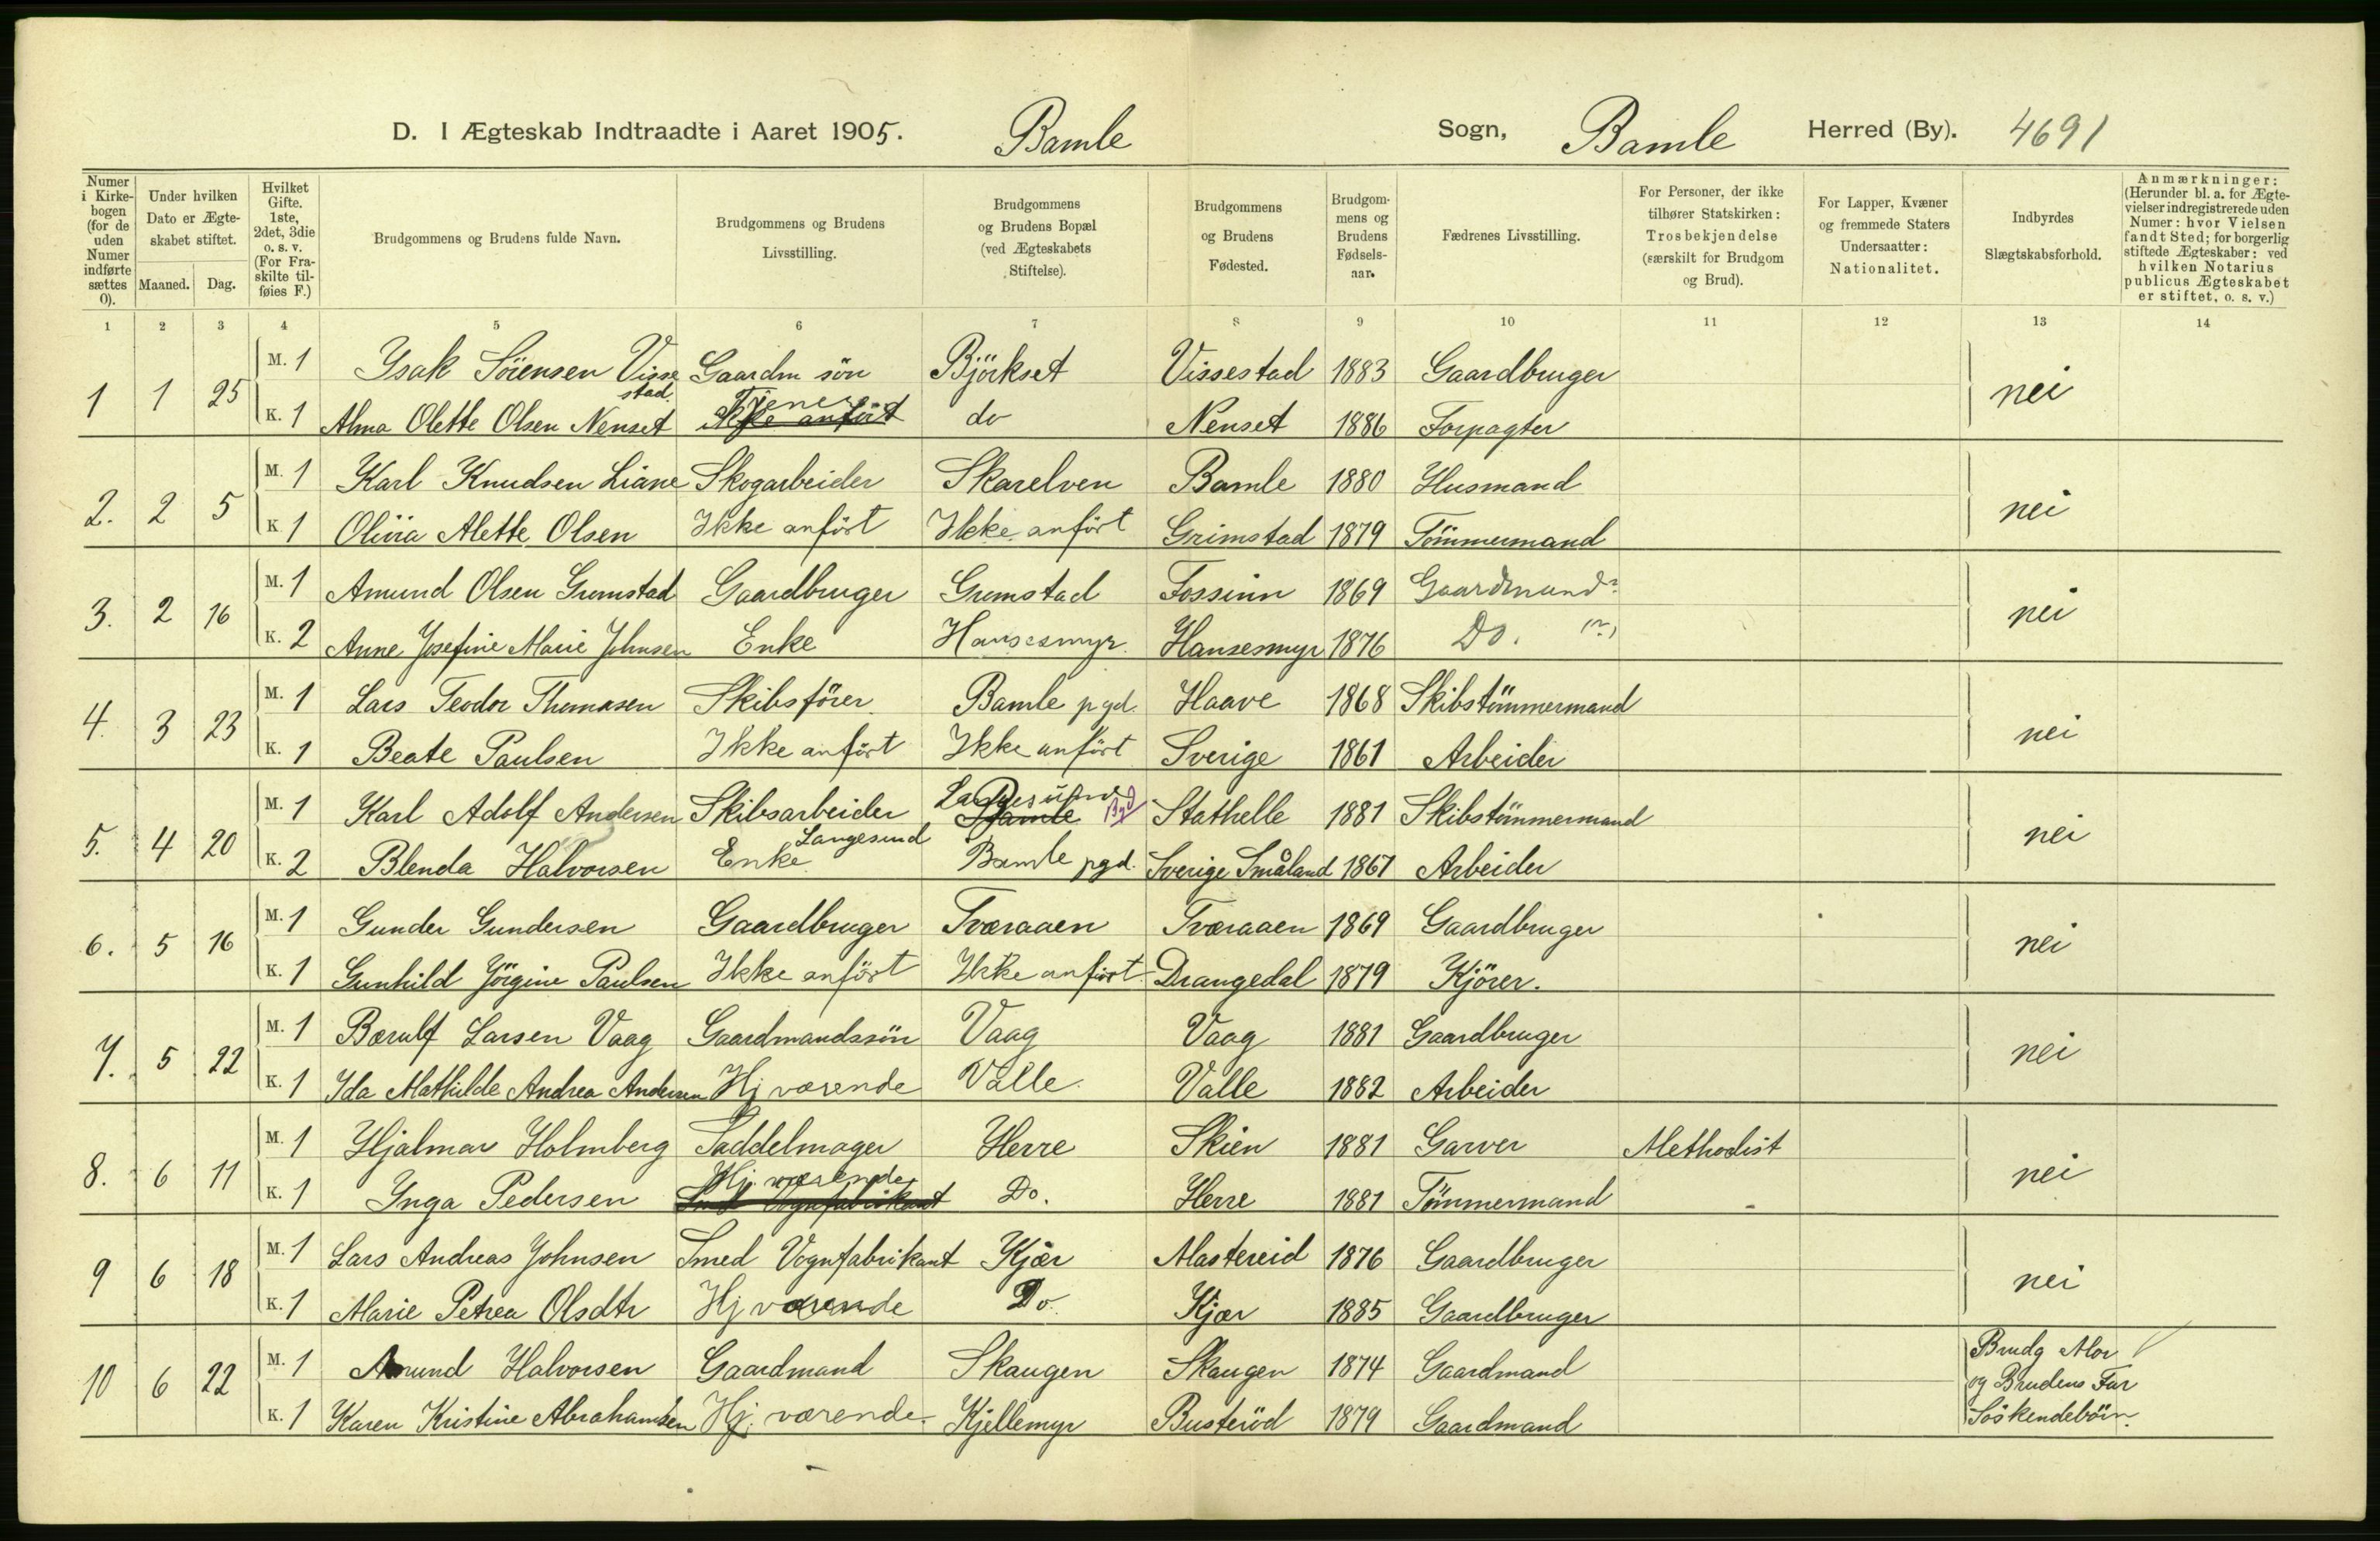 D. I Ægteskab Indtraadte i Aaret 1905. Bamle Sogn, Bamle Herred (By). 4691
Numer i Kirkebogen (for de uden Numer indførte sættes 0).
Under hvilken Dato er Ægteskabet stiftet.
Maaned. Dag.
Hvilket Gifte. 1ste, 2det, 3die o. s. v. (For Fraskilte tilføies F.)
Brudgommens og Brudens fulde Navn.
Brudgommens og Brudens Livsstilling.
Brudgommens og Brudens Bopæl (ved Ægteskabets Stiftelse).
Brudgommens og Brudens Fødested.
Brudgommens og Brudens Fødselsaar.
Fædrenes Livsstilling.
For Personer, der ikke tilhører Statskirken: Trosbekjendelse (særskilt for Brudgom og Brud).
For Lapper, Kvæner og fremmede Staters Undersaatter: Nationalitet.
Indbyrdes Slægtskabsforhold.
Anmærkninger: (Herunder bl. a. for Ægtevielser indregistrerede uden Numer: hvor Vielsen fandt Sted; for borgerlig stiftede Ægteskaber: ved hvilken Notarius publicus Ægteskabet er stiftet, o. s. v.)
1 2 3 4 5 6 7 8 9 10 11 12 13 14
1 1 25 M. 1 Ysak Sörensen Visse stad. Gaardm sön Björkset Vissestad 1883 Gaardbruger nei
K. 1 Alma Olette Olsen Nenset Ikke anfört Tjener do Nenset 1886 Forpagter
2. 2 5 M. 1 Karl Knudsen Liane Skogarbeider Skarelven Bamle 1880 Husmand nei
K 1 Olivia Alette Olsen Ikke anfört Ikke anfört Grimstad 1879 Tömmermand
3. 2 16 M. 1 Amund Olsen Grumstad Gaardbruger Grumstad Fossinn 1869 Gaardmand? nei
K. 2 Anne Josefine Marie Johnsen Enke Hansesmyr. Hansesmyr 1876 Do. (?)
4. 3 23 M. 1 Lars Teodor Thomasen Skibsförer Bamle pgd. Haave 1868 Skibstömmermand nei
K. 1 Beate Paulsen Ikke anfört Ikke anfört Sverige 1861 Arbeider
5. 4 20 M. 1 Karl Adolf Andersen Skibsarbeider Langesund Bamle Stathelle 1881 Skibstömmermand nei
K. 2 Blenda Halvorsen Enke Langesund Bamle pgd. Sverige Småland 1867 Arbeider
6. 5 16 M. 1 Gunder Gundersen Gaardbruger Tværaaen Tværaaen 1869 Gaardbruger nei
K. 1 Gunhild Jörgine Paulsen Ikke anfört Ikke anfört Drangedal 1879 Kjörer.
7. 5 22 M. 1 Bærulf Larsen Vaag Gaardmandssön Vaag Vaag 1881 Gaardbruger nei
K. 1 Ida Mathilde Andrea Andersen Hj værende Valle. Valle 1882 Arbeider
8. 6 11 M. 1 Hjalmar Holmberg Saddelmager Herre Skien 1881 Garver Methodist nei
K. 1 Inga Pedersen Smed Vognfabrikant Hj. værende Do. Herre 1881 Tömmermand -
9 6 18 M. 1 Lars Andreas Johnsen Smed Vognfabrikant Kjær Mastereid 1876 Gaardbruger nei
K. 1 Marie Petrea Olsdtr Hj værende Do. Kjær 1885 Gaardbruger
10 6 22 M. 1 Amund Halvorsen Gaardmand Skaugen Skaugen 1874 Gaardmand Brudg Mor og Brudens Far Söskendebörn.
K. 1 Karen Kristine Abrahamsen Hj. værende. Kjellemyr Busteröd 1879 Gaardmand